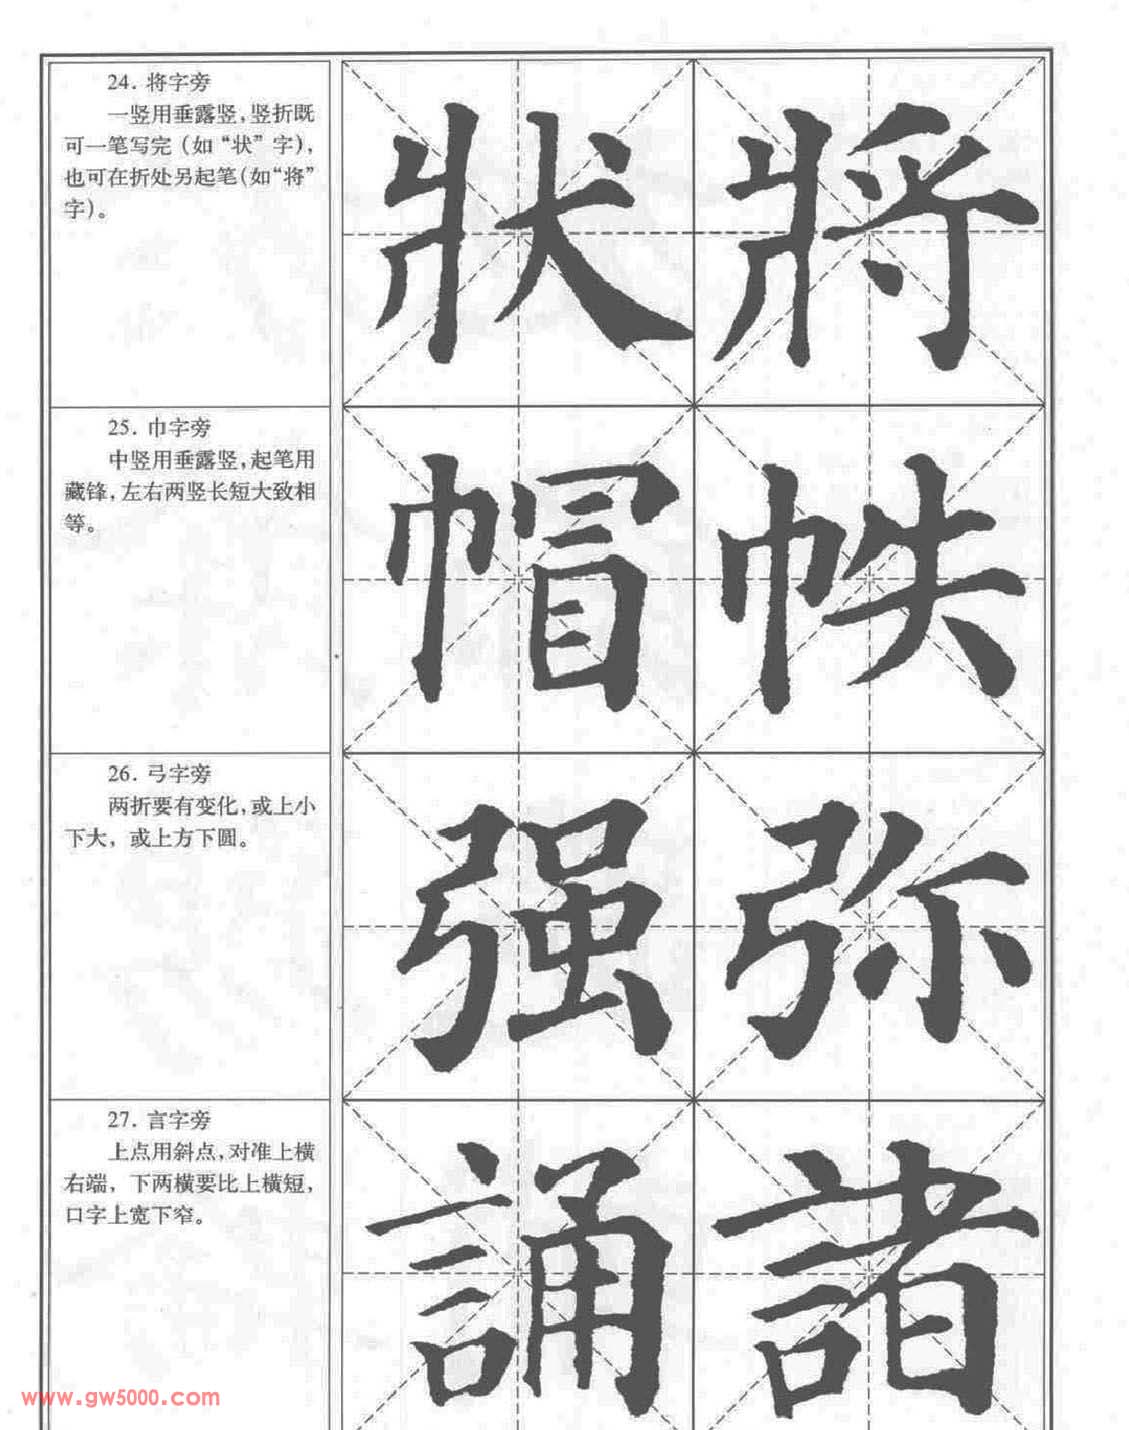 24. 将字旁
一竖用垂露竖，竖折既
可一笔写完（如“状”字），
也可在折处另起笔（如“将”
字）。
狀將
25. 巾字旁
中竖用垂露竖，起笔用
藏锋，左右两竖长短大致相
等。
帽帙
26. 弓字旁
两折要有变化，或上小
下大，或上方下圆。
强弥
27. 言字旁
上点用斜点，对准上横
右端，下两横要比上横短，
口字上宽下窄。
誦諸
www.gw5000.com